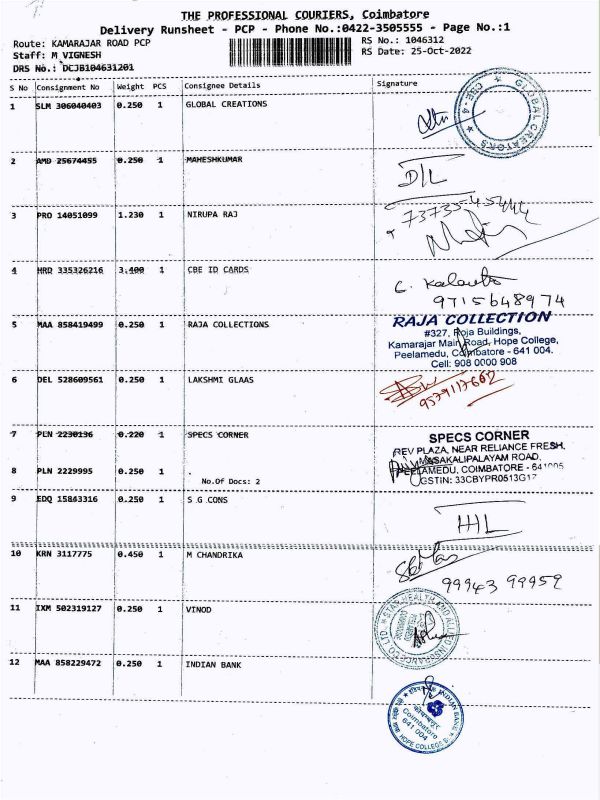 THE PROFESSIONAL COURIERS, Coimbatore
Delivery Runsheet - PCP - Phone No.:0422-3505555 - Page No.:1
Route: KAMARAJAR ROAD PCP
RS No.: 1046312
Staff: M VIGNESH
RS Date: 25-Oct-2022
DRS No.: DCJB104631201
S No Consignment No Weight PCS Consignee Details Signature
1 SLM 306040403 0.250 1 GLOBAL CREATIONS
GLOBAL CREATORS ★ CBE - 4 ★
2 AMD 25674455 0.250 1 MAHESHKUMAR
D/L
3 PRO 14051099 1.230 1 NIRUPA RAJ
4 HRD 335326216 3.400 1 CBE ID CARDS
9715648974
5 MAA 858419499 0.250 1 RAJA COLLECTIONS
RAJA COLLECTION
#327, Roja Buildings,
Kamarajar Main Road, Hope College,
Peelamedu, Coimbatore - 641 004.
Cell: 908 0000 908
6 DEL 528609561 0.250 1 LAKSHMI GLAAS
9579117662
7 PLN 2230136 0.220 1 SPECS CORNER
SPECS CORNER
REV PLAZA, NEAR RELIANCE FRESH,
MASAKALIPALAYAM ROAD,
PEELAMEDU, COIMBATORE -
8 PLN 2229995 0.250 1 .
No.Of Docs: 2
GSTIN: 33CBYPR0513G1Z
9 EDQ 15863316 0.250 1 S G CONS
10 KRN 3117775 0.450 1 M CHANDRIKA
99943 99959
11 IXM 502319127 0.250 1 VINOD
STAR HEALTH AND ALLIED INSURANCE CO. LTD.
12 MAA 858229472 0.250 1 INDIAN BANK
INDIAN BANK
कोयम्बत्तूर
Coimbatore
641 004
HOPE COLLEGE B